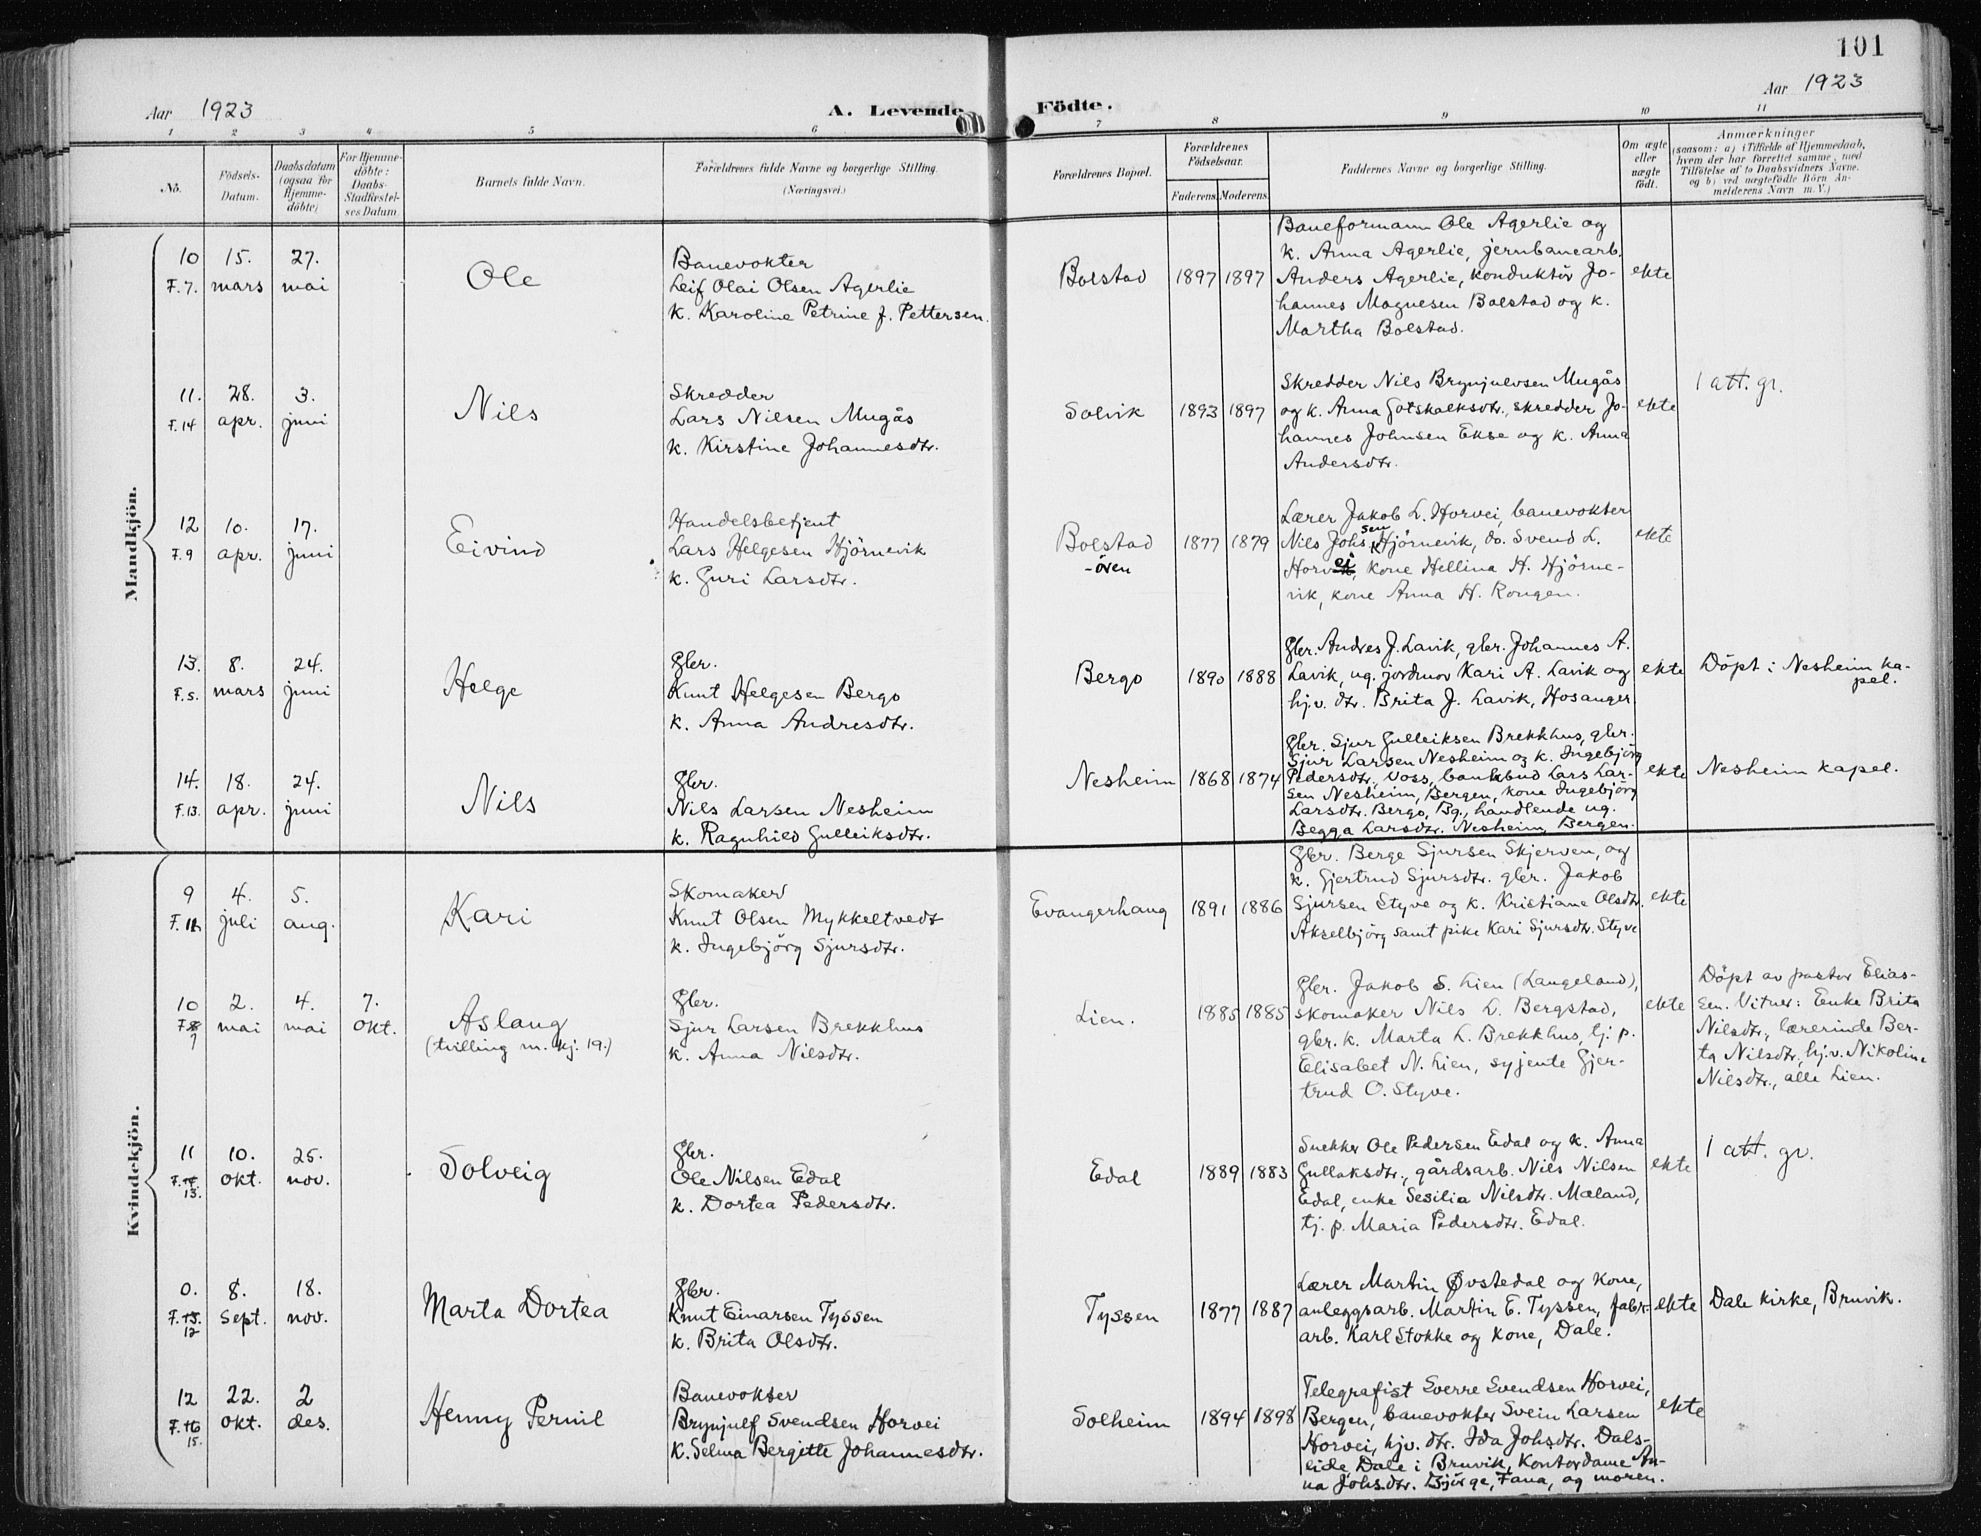 101
Aar 1923
A. Levende
Födte.
Aar 1923
1 2 3 4 5 6 7 8 9 10 11
No.
Födsels-
Datum.
Daabsdatum
(ogsaa for
Hjemme-
döbte)
For Hjemme-
döbte:
Daabs-
Stadfæstel-
ses Datum
Barnets fulde Navn.
Forældrenes fulde Navne og borgerlige Stilling.
(Næringsvei.)
Forældrenes Bopæl.
Forældrenes
Födselsaar.
Faderens. Moderens.
Faddernes Navne og borgerlige Stilling.
Om ægte
eller
uægte
födt.
Anmærkninger
(saasom: a) i Tilfælde af Hjemmedaab,
hvem der har forrettet samme, med
Tilföielse af to Daabsvidners Navne.
og b) ved uægtefödte Börn An-
melderens Navn m. V.)
Mandkjön.
10
F. 7.
15.
mars
27.
mai
Ole
Banevokter
Leif Olai Olsen Agerlie
k. Karoline Petrine J. Pettersen.
Bolstad
1897
1897
Baneformann Ole Agerlie og
k. Anna Agerlie, jernbanearb.
Anders Agerlie, konduktör Jo-
hannes Magnesen Bolstad og k.
Martha Bolstad.
ekte
11.
F. 14
28.
apr.
3.
juni
Nils
Skredder
Lars Nilsen Mugås
k. Kirstine Johannesdtr.
Solvik
1893
1897
Skredder Nils Brynjulvsen Mugås
og k. Anna Gotskalksdtr., skredder Jo-
hannes Johnsen Ekse og k. Anna
Andersdtr.
ekte
1 att. gr.
12
F. 9
10.
apr.
17.
juni
Eivind
Handelsbetjent
Lars Helgesen Hjörnevik
k. Guri Larsdtr.
Bolstad
-ören
1877
1879
Lærer Jakob L. Horvei, banevokter
Nils Johs sen Hjörnevik, do. Svend L.
Horvei, kone Hellina H. Hjörne-
vik, kone Anna H. Rongen.
ekte
13.
F. 5.
8.
mars
24.
juni
Helge
Gbr.
Knut Helgesen Bergo
k. Anna Andresdtr.
Bergo
1890
1888
Gbr. Andres J. Lavik, gbr. Johannes A.
Lavik, ug. jordmor Kari A. Lavik og
hj.v. dtr. Brita J. Lavik, Hosanger.
ekte
Döpt i Nesheim ka-
pel.
14.
F. 13.
18.
apr.
24.
juni
Nils
Gbr.
Nils Larsen Nesheim
k. Ragnhild Gulleiksdtr.
Nesheim
1868
1874
Gbr. Sjur Gulleiksen Brekkhus, gbr.
Sjur Larsen Nesheim og k. Ingebjörg
Pedersdtr., Voss, bankbud Lars Lar-
sen Nesheim, Bergen, kone Ingebjörg
Larsdtr. Bergo, Bg., handlende ug.
Begga Larsdtr. Nesheim, Bergen.
ekte
Nesheim kapel.
Kvindekjön.
9
4.
juli
5.
aug.
Kari
Skomaker
Knut Olsen Mykkeltvedt
k. Ingebjörg Sjursdtr.
Evangerhaug
1891
1886
Gbr. Berge Sjursen Skjerven, og
k. Gjertrud Sjursdtr. gbr. Jakob
Sjursen Styve og k. Kristiane Olsdtr.
Akselbjörg samt pike Kari Sjursdtr. Styve
ekte
10
F. 8
7
2.
mai
4.
mai
7.
okt.
Aslaug
(tvilling m. kj. 19.)
Gbr.
Sjur Larsen Brekkhus
k. Anna Nilsdtr.
Lien.
1885
1885
Gbr. Jakob S. Lien (Langeland),
skomaker Nils L. Bergstad,
gbr. k. Marta L. Brekkhus, tj. p.
Elisabet N. Lien, syjente Gjer-
trud O. Styve.
ekte
Döpt av pastor Elias-
sen. Vitner: Enke Brita
Nilsdtr., lærerinde Ber-
ta Nilsdtr., hj.v. Nikoline
Nilsdtr., alle Lien.
11
13.
10.
okt.
25.
nov.
Solveig
Gbr.
Ole Nilsen Edal
k. Dortea Pedersdtr.
Edal
1889
1883
Snekker Ole Pedersen Edal og k. Anna
Gullaksdtr., gårdsarb. Nils Nilsen
Edal, enke Sesilia Nilsdtr. Mæland,
tj. p. Maria Pedersdtr. Edal.
ekte
1 att. gr.
0.
F. 13.
12
8.
Sept.
18.
nov.
Marta Dortea
Gbr.
Knut Einarsen Tyssen
k. Brita Olsdtr.
Tyssen
1877
1887
Lærer Martin Øvstedal og kone,
anleggsarb. Martin E. Tyssen, fabr.-
arb. Karl Stokke og kone, Dale.
ekte
Dale kirke, Bruvik.
12
F. 16
15.
22.
okt.
2
des.
Henny Pernil
Banevokter
Brynjulf Svendsen Horvei
k. Selma Bergitte Johannesdtr.
Solheim
1894
1898
Telegrafist Sverre Svendsen Horvei,
Bergen, banevokter Svein Larsen
Horvei, hjv. dtr. Ida Johsdtr. Dals-
lide Dale i Bruvik, Kontordame An-
na Johsdtr. Björge, Fana, og moren.
ekte